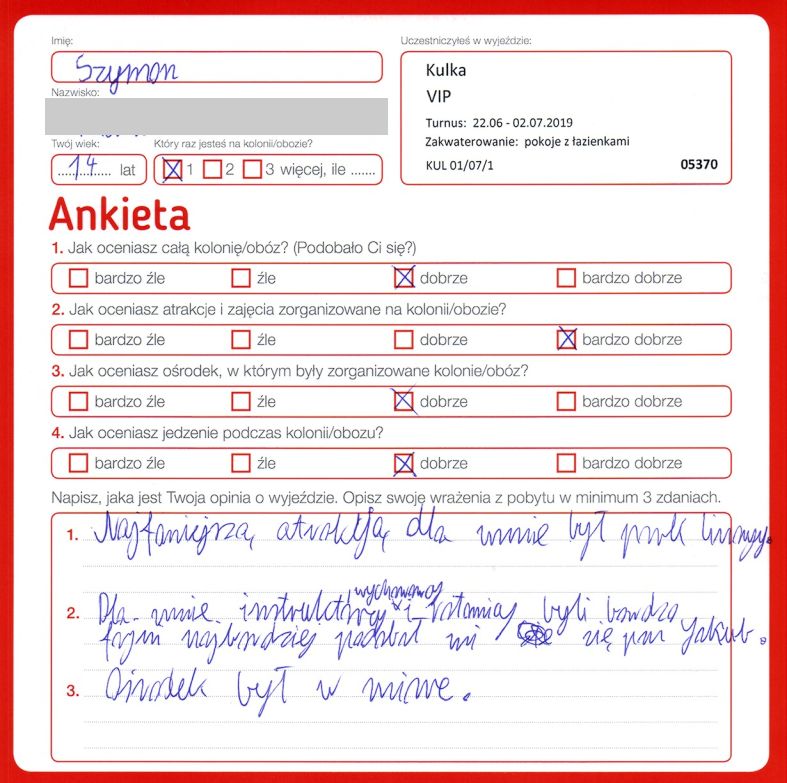 Imię:
Uczestniczyłeś w wyjeździe:
Szymon
Kulka
VIP
Nazwisko:
Turnus: 22.06 - 02.07.2019
Zakwaterowanie: pokoje z łazienkami
KUL 01/07/1 05370
Twój wiek: Który raz jesteś na kolonii/obozie?
14 lat 1 2 3 więcej, ile .......
Ankieta
1. Jak oceniasz całą kolonię/obóz? (Podobało Ci się?)
bardzo źle źle dobrze bardzo dobrze
2. Jak oceniasz atrakcje i zajęcia zorganizowane na kolonii/obozie?
bardzo źle źle dobrze bardzo dobrze
3. Jak oceniasz ośrodek, w którym były zorganizowane kolonie/obóz?
bardzo źle źle dobrze bardzo dobrze
4. Jak oceniasz jedzenie podczas kolonii/obozu?
bardzo źle źle dobrze bardzo dobrze
Napisz, jaka jest Twoja opinia o wyjeździe. Opisz swoję wrażenia z pobytu w minimum 3 zdaniach.
1. Najfaniejszą atrakcją dla mnie był park linowy.
wychowawcy
2. Dla mnie instruktorzy i byli bardzo
fajni najbardziej podobał mi się pan Jakub.
3. Ośrodek był w miare.